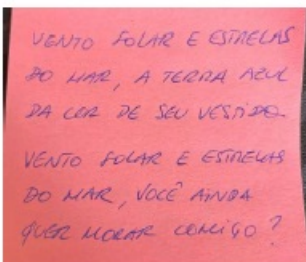 VENTO SOLAR E ESTRELAS
DO MAR, A TERRA AZUL
DA COR DE SEU VESTIDO.
VENTO SOLAR E ESTRELAS
DO MAR, VOCÊ AINDA
QUER MORAR COMIGO?